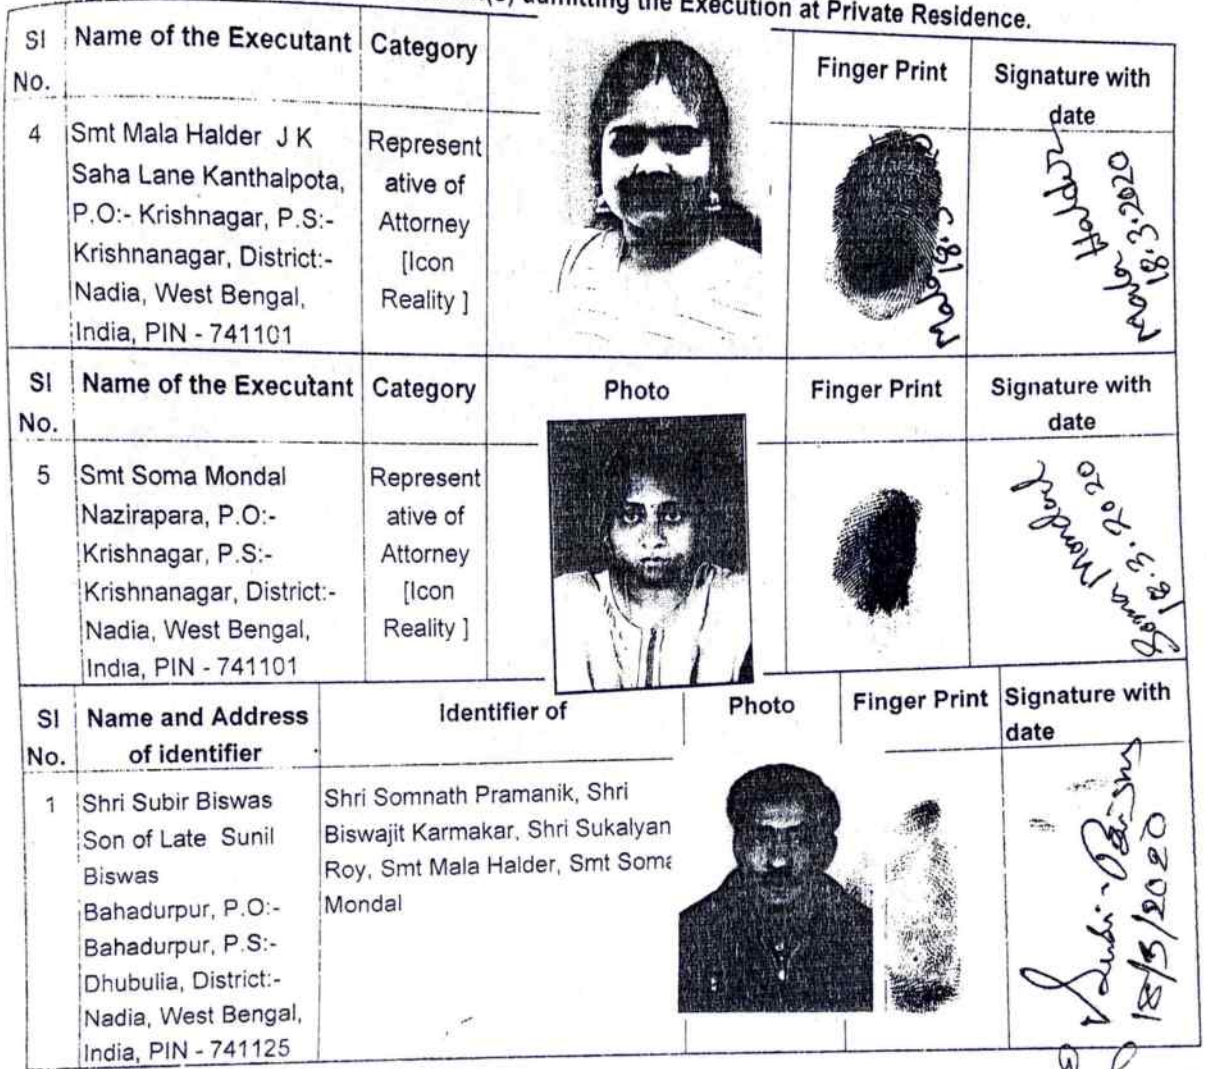 admitting the Execution at Private Residence.
Sl No. Name of the Executant Category Finger Print Signature with date
4 Smt Mala Halder J K
Saha Lane Kanthalpota,
P.O:- Krishnagar, P.S:-
Krishnanagar, District:-
Nadia, West Bengal,
India, PIN - 741101
Represent
ative of
Attorney
[Icon
Reality ]
Mala Halder
18.3.2020
Sl No. Name of the Executant Category Photo Finger Print Signature with date
5 Smt Soma Mondal
Nazirapara, P.O:-
Krishnagar, P.S:-
Krishnanagar, District:-
Nadia, West Bengal,
India, PIN - 741101
Represent
ative of
Attorney
[Icon
Reality ]
Soma Mondal
18.3.2020
Sl No. Name and Address of identifier Identifier of Photo Finger Print Signature with date
1 Shri Subir Biswas
Son of Late Sunil
Biswas
Bahadurpur, P.O:-
Bahadurpur, P.S:-
Dhubulia, District:-
Nadia, West Bengal,
India, PIN - 741125
Shri Somnath Pramanik, Shri
Biswajit Karmakar, Shri Sukalyan
Roy, Smt Mala Halder, Smt Soma
Mondal
18/3/2020